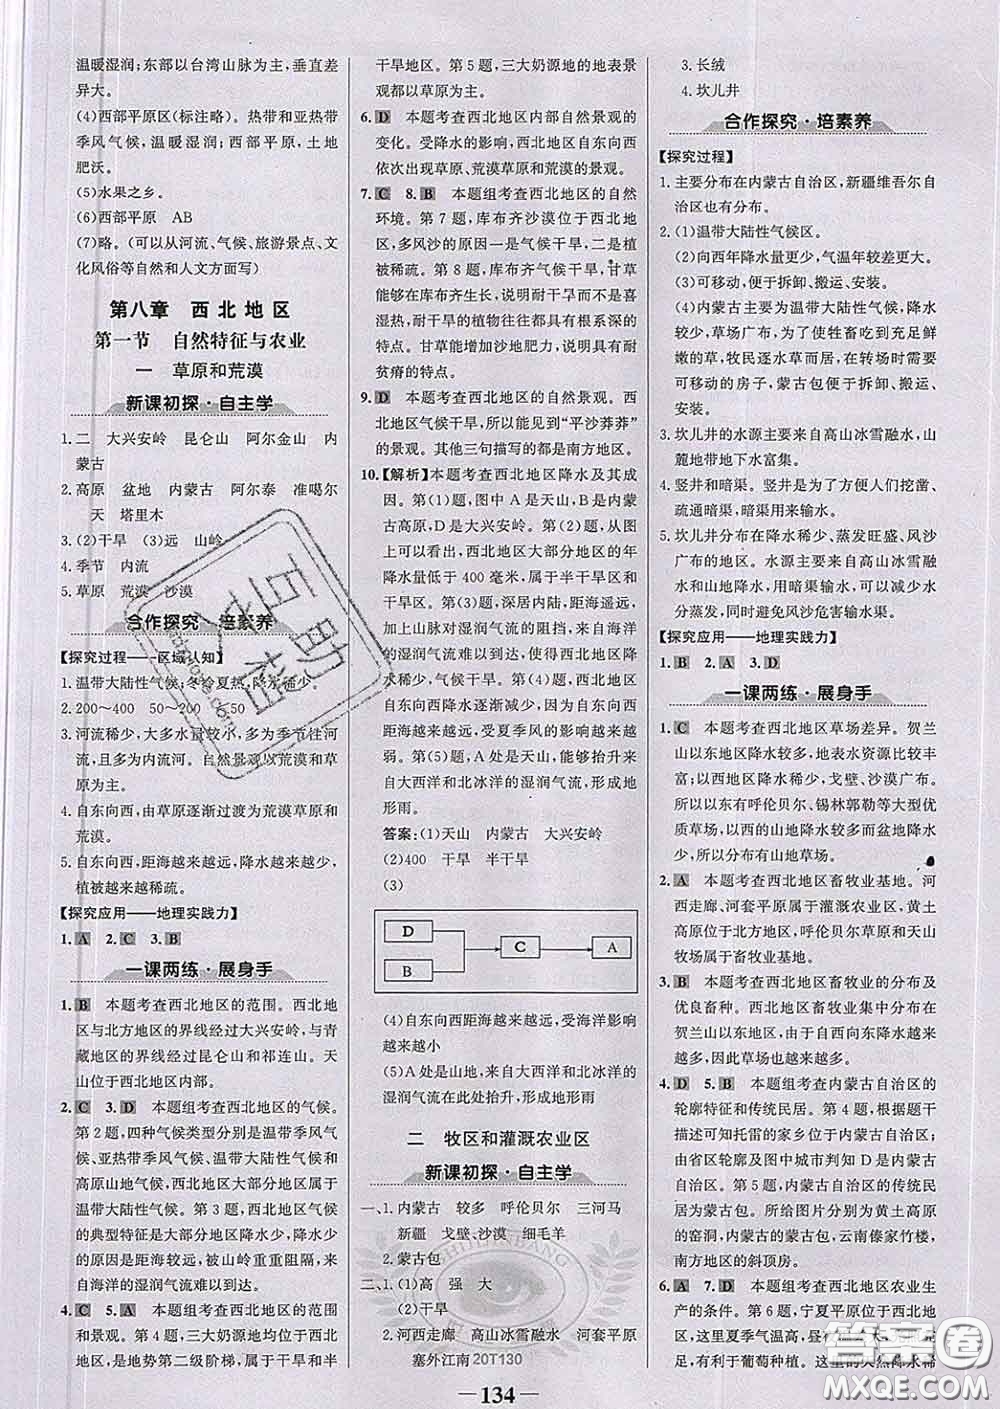 温暖湿润;东部以台湾山脉为主,垂直差
异大。
(4)西部平原区(标注略)。热带和亚热带
季风气候,温暖湿润;西部平原,土地
肥沃。
(5)水果之乡。
(6)西部平原 AB
(7)略。(可以从河流、气候、旅游景点、文
化风俗等自然和人文方面写)
第八章 西北地区
第一节 自然特征与农业
一 草原和荒漠
新课初探·自主学
1.二 大兴安岭 昆仑山 阿尔金山 内
蒙古
2.高原 盆地 内蒙古 阿尔泰 准噶尔
天 塔里木
3.(2)干旱 (3)远 山岭
4.季节 内流
5.草原 荒漠 沙漠
合作探究·培素养
【探究过程——区域认知】
1.温带大陆性气候;冬冷夏热,降水稀少。
2.200~400 50~200 <50
3.河流稀少,大多水量较小,多为季节性河
流,且多为内流河。自然景观以荒漠和草
原为主。
4.自东向西,由草原逐渐过渡为荒漠草原和
荒漠。
5.自东向西,距海越来越远,降水越来越少,
植被越来越稀疏。
【探究应用——地理实践力】
1.A 2.C 3.B
一课两练·展身手
1.B 本题考查西北地区的范围。西北地
区与北方地区的界线经过大兴安岭,与青
藏地区的界线经过昆仑山和祁连山。天
山位于西北地区内部。
2.C 3.D 本题组考查西北地区的气候。
第2题,四种气候类型分别是温带季风气
候、亚热带季风气候、温带大陆性气候、
高山高原气候,西北地区大部分地区属于
温带大陆性气候。第3题,西北地区气候
的典型特征是大部分地区降水稀少,成因
是距海较远,加之有山岭重重阻隔,来自
海洋的湿润气流难以到达。
4.C 5.A 本题组考查西北地区的范围
和景观。第4题,三大奶源地均位于西北
地区,是地势第二级阶梯,属于干旱和半
干旱地区。第5题,三大奶源地的地表景
观都以草原为主。
6.D 本题考查西北地区内部自然景观的
变化。受降水的影响,西北地区自东向西
依次出现草原、荒漠草原和荒漠的景观。
7.C 8.B 本题组考查西北地区的自然
环境。第7题,库布齐沙漠位于西北地
区,多风沙的原因一是气候干旱,二是植
被稀疏。第8题,库布齐气候干旱,甘草
能够在库布齐生长,说明其耐干旱、喜
湿热,耐干旱的植物往往都有非常
发达的根系。甘草能增加沙地肥力,说明其耐
贫瘠的特点。
9.D 本题考查西北地区的自然景观。西
北地区气候干旱,所以能看到“平沙莽莽”
的景观。其他三句描写的都是南方地区。
10.【解析】本题考查西北地区降水及其成
因。第(1)题,图中A是天山,B是内蒙
古高原,D是大兴安岭。第(2)题,从图
上可以看出,西北地区大部分地区的年
降水量低于400毫米,属于半干旱区和
干旱区。第(3)题,深居内陆,距海遥远,
加上山脉对湿润气流的阻挡,来自海洋
的湿润气流难以到达,使得西北地区降
水稀少,气候干旱。第(4)题,西北地区
的降水自东向西逐渐减少,
原因是距海越来越远,受夏季风的影响越来
越小。第(5)题,A处是天山,山地对来
自大西洋和北冰洋的湿润气流,形成地
形雨。
答案:(1)天山 内蒙古 大兴安岭
(2)400 干旱 半干旱
(3)
D
B
C
A
(4)自东向西距海越来越远,受海洋影响
越来越小
(5)A处是山地,来自大西洋和北冰洋的
湿润气流在此处抬升,形成地形雨
二 牧区和灌溉农业区
新课初探·自主学
一、1.内蒙古 较多 呼伦贝尔 三河马
新疆 戈壁、沙漠 细毛羊
2.蒙古包
二、1.(1)高 强 大
(2)干旱
2.河西走廊 高山冰雪融水 河套平原
塞外江南
3.长绒
4.坎儿井
合作探究·培素养
【探究过程】
1.主要分布在内蒙古自治区,新疆维吾尔自
治区也有分布。
2.(1)温带大陆性气候区。
(2)向西年降水量更少,气温年较差更大。
(3)可移动,便于拆卸、搬运、安装。
(4)内蒙古主要为温带大陆性气候,降水
较少,草场广布,为了使牲畜吃到充足鲜
嫩的草,牧民逐水草而居,在转场时需要
可移动的房子,蒙古包便于拆卸、搬运、
安装。
3.坎儿井的水源主要来自高山冰雪融水,山
麓地带地下水富集。
4.竖井和暗渠。竖井是用来方便人们挖凿、
疏通暗渠,暗渠是用来输水。
5.坎儿井主要分布在降水稀少、蒸发旺盛、风沙
广布的地区。水源主要来自高山冰雪融
水和山地降水,用暗渠输水,可以减少水
分蒸发,同时避免风沙危害输水渠。
【探究应用——地理实践力】
1.B 2.A 3.D
一课两练·展身手
1.C 本题考查西北地区草场差异。贺兰
山以东地区降水较多,地表水资源比较丰
富;以西的地区降水稀少,戈壁、沙漠广布。
所以以东有呼伦贝尔、锡林郭勒等大型
优质草场;以西的山地降水多而盆地降水少,
所以分布有山地草场。
2.A 本题考查西北地区畜牧业基地。河
西走廊、河套平原属于灌溉农业区,黄土
高原位于北方地区,呼伦贝尔草原和天山
牧场属于畜牧业基地。
3.B 本题考查西北地区畜牧业的分布及
优良畜种。西北地区畜牧业集中分布在
贺兰山以东地区,由于自西向东降水越来
越多,因此草场也越来越好。
4.D 5.B 本题组考查内蒙古自治区的
轮廓特征和传统民居。第4题,根据题干
描述可知托雷的家乡位于内蒙古自治区,
由省区轮廓及图中城市判知D是内蒙古
自治区。第5题,内蒙古自治区的传统民
居是蒙古包。所给图片分别对应黄土高
原的窑洞、内蒙古的蒙古包,云南傣家竹楼,
南方民居的斜顶房。
6.A 7.D 本题组考查西北地区农业生
产的条件。第6题,宁夏平原位于西北地
区,这里夏季气温高,昼夜温差大,
有利于葡萄种植。
20T130
134
答案圈
MXQE.COM